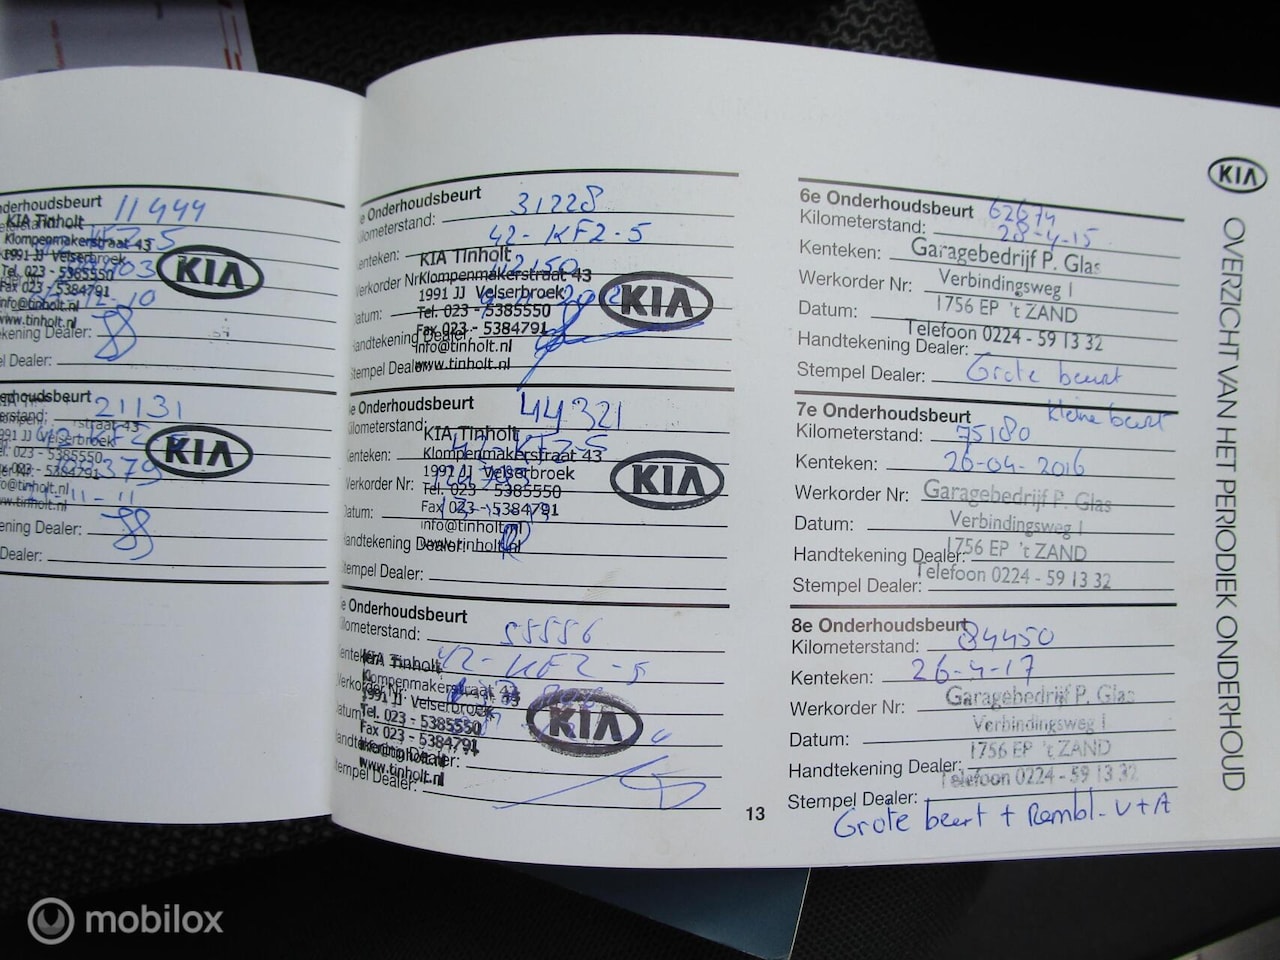 nderhoudsbeurt 11444
KIA Tinholt
Klompenmakerstraat 43
1991 JJ Velserbroek
Tel. 023 - 5385550
Fax 023 - 5384791
info@tinholt.nl
www.tinholt.nl
ekening Dealer:
el Dealer:
KIA
erhoudsbeurt
erstand: 21131
straat 43
991 JJ Velserbroek
023 - 5385550
023 - 5384791
fo@tinholt.nl
w.tinholt.nl
ening Dealer:
Dealer:
KIA
e Onderhoudsbeurt
ilometerstand: 31228
enteken: 42-KF2-5
KIA Tinholt
Werkorder Nr: 112150
Klompenmakerstraat 43
1991 JJ Velserbroek
atum:
Tel. 023 - 5385550
Fax 023 - 5384791
Handtekening Dealer:
info@tinholt.nl
Stempel Dealer:
www.tinholt.nl
KIA
e Onderhoudsbeurt
Kilometerstand: 44321
KIA Tinholt
Kenteken: 42-KF2-5
Klompenmakerstraat 43
1991 JJ Velserbroek
Werkorder Nr:
Tel. 023 - 5385550
Fax 023 - 5384791
Datum:
info@tinholt.nl
Handtekening Dealer:
www.tinholt.nl
Stempel Dealer:
KIA
e Onderhoudsbeurt
ilometerstand: 55556
Kenteken: 42-KF2-5
KIA Tinholt
Klompenmakerstraat 43
Werkorder Nr:
1991 JJ Velserbroek
atum:
Tel. 023 - 5385550
Fax 023 - 5384791
Handtekening Dealer:
info@tinholt.nl
www.tinholt.nl
tempel Dealer:
KIA
6e Onderhoudsbeurt
Kilometerstand: 62674
28-4-15
Kenteken:
Garagebedrijf P. Glas
Werkorder Nr:
Verbindingsweg 1
Datum:
1756 EP 't ZAND
Telefoon 0224 - 59 13 32
Handtekening Dealer:
Stempel Dealer: Grote beurt
7e Onderhoudsbeurt kleine beurt
Kilometerstand: 75180
Kenteken: 26-04-2016
Werkorder Nr: Garagebedrijf P. Glas
Verbindingsweg 1
Datum:
1756 EP 't ZAND
Handtekening Dealer:
Telefoon 0224 - 59 13 32
Stempel Dealer:
8e Onderhoudsbeurt
Kilometerstand: 84450
Kenteken: 26-4-17
Werkorder Nr: Garagebedrijf P. Glas
Verbindingsweg 1
Datum:
1756 EP 't ZAND
Handtekening Dealer:
Telefoon 0224 - 59 13 32
Stempel Dealer:
Grote beurt + Rembl. V+A
13
KIA
OVERZICHT VAN HET PERIODIEK ONDERHOUD
mobilox